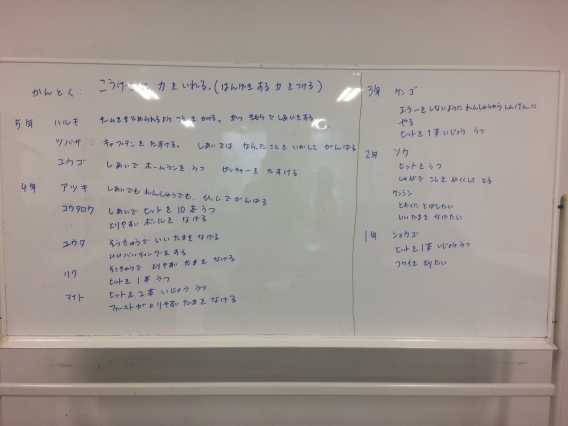 かんとく： こうげきに 力をいれる。(はんげきする力をつける)
5年 ハルキ チームをまとめられるよう つとめる。 かつ きもちで しあいをする
ツバサ： キャプテンを たすける。 しあいでは ならったことを いかして がんばる
ユウゴ しあいで ホームランを うつ ピッチャーを たすける
4年 アツキ しあいでも れんしゅうでも、ひっしで がんばる
コウタロウ しあいで ヒットを 10本 うつ
とりやすい ボールを なげる
ユウタ そうきゅうで いいたまを なげる
いいバッティングを する
リク そうきゅうで とりやすい たまを なげる
ヒットを 1本 うつ
マナト ヒットを 2本 いじょう うつ
ファーストが とりやすい たまを なげる
3年 ケンゴ
エラーを しないように れんしゅうから しんけんに
やる
ヒットを 1本 いじょう うつ
2年 ソウ
ヒットを うつ
しゅびで こしを ひくくして とる
ケンシン
とおくに とばしたい
いいたまを なげたい
1年 ショウゴ
ヒットを 1本 いじょう うつ
フライを とりたい